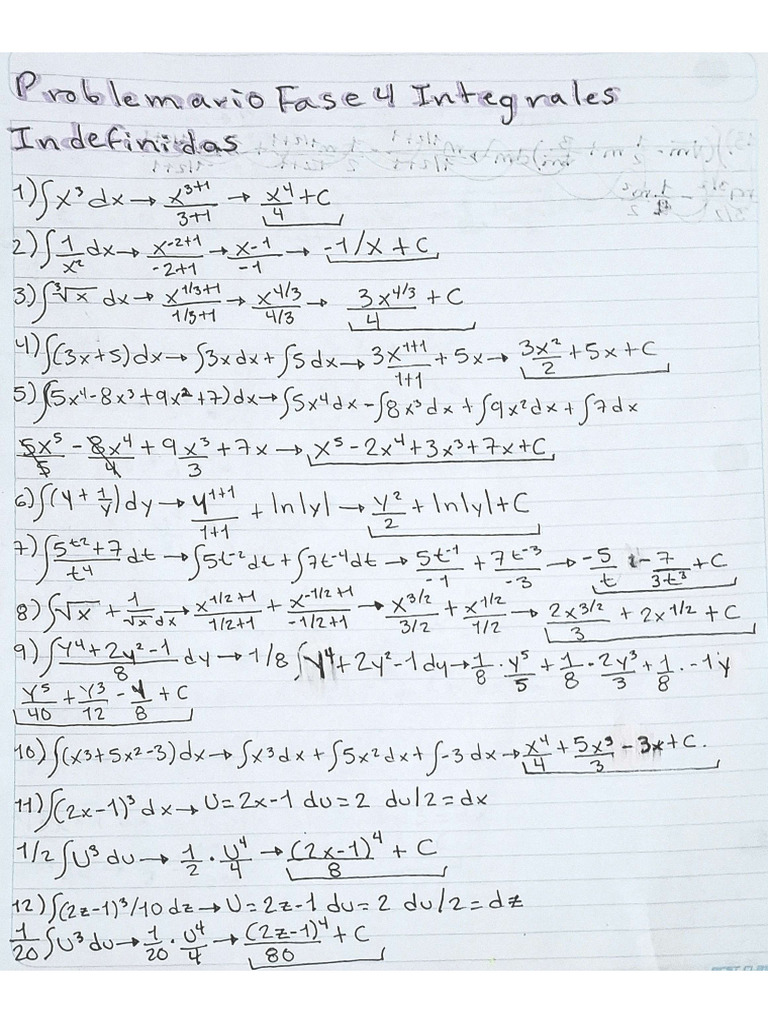 Problemario Fase 4 Integrales
Indefinidas
1) ∫x³ dx → x³⁺¹/3+1 → x⁴/4 + C
2) ∫1/x² dx → x⁻²⁺¹/-2+1 → x-1/-1 → -1/x + C
3) ∫³√x dx → x^1/3+1/1/3+1 → x^4/3/4/3 → 3x^4/3/4 + C
4) ∫(3x+5)dx → ∫3xdx + ∫5dx → 3x¹⁺¹/1+1 + 5x → 3x²/2 + 5x + C
5) ∫(5x⁴-8x³+9x²+7)dx → ∫5x⁴dx - ∫8x³dx + ∫9x²dx + ∫7dx
5x⁵/5 - 8x⁴/4 + 9x³/3 + 7x → x⁵ - 2x⁴ + 3x³ + 7x + C
6) ∫(y + 1/y)dy → y¹⁺¹/1+1 + ln|y| → y²/2 + ln|y| + C
7) ∫5t²+7/t⁴ dt → ∫5t⁻²dt + ∫7t⁻⁴dt → 5t⁻¹/-1 + 7t⁻³/-3 → -5/t - 7/3t³ + C
8) ∫√x + 1/√x dx → x^1/2+1/1/2+1 + x^-1/2+1/-1/2+1 → x^3/2/3/2 + x^1/2/1/2 → 2x^3/2/3 + 2x^1/2 + C
9) ∫y⁴+2y²-1/8 dy → 1/8 ∫y⁴+2y²-1dy → 1/8 · y⁵/5 + 1/8 · 2y³/3 + 1/8 · -1y
y⁵/40 + y³/12 - y/8 + C
10) ∫(x³+5x²-3)dx → ∫x³dx + ∫5x²dx + ∫-3dx → x⁴/4 + 5x³/3 - 3x + C.
11) ∫(2x-1)³dx → U=2x-1 du=2 du/2=dx
1/2∫U³du → 1/2 · U⁴/4 → (2x-1)⁴/8 + C
12) ∫(2z-1)³/10 dz → U=2z-1 du=2 du/2=dz
1/20∫U³du → 1/20 · U⁴/4 → (2z-1)⁴/80 + C